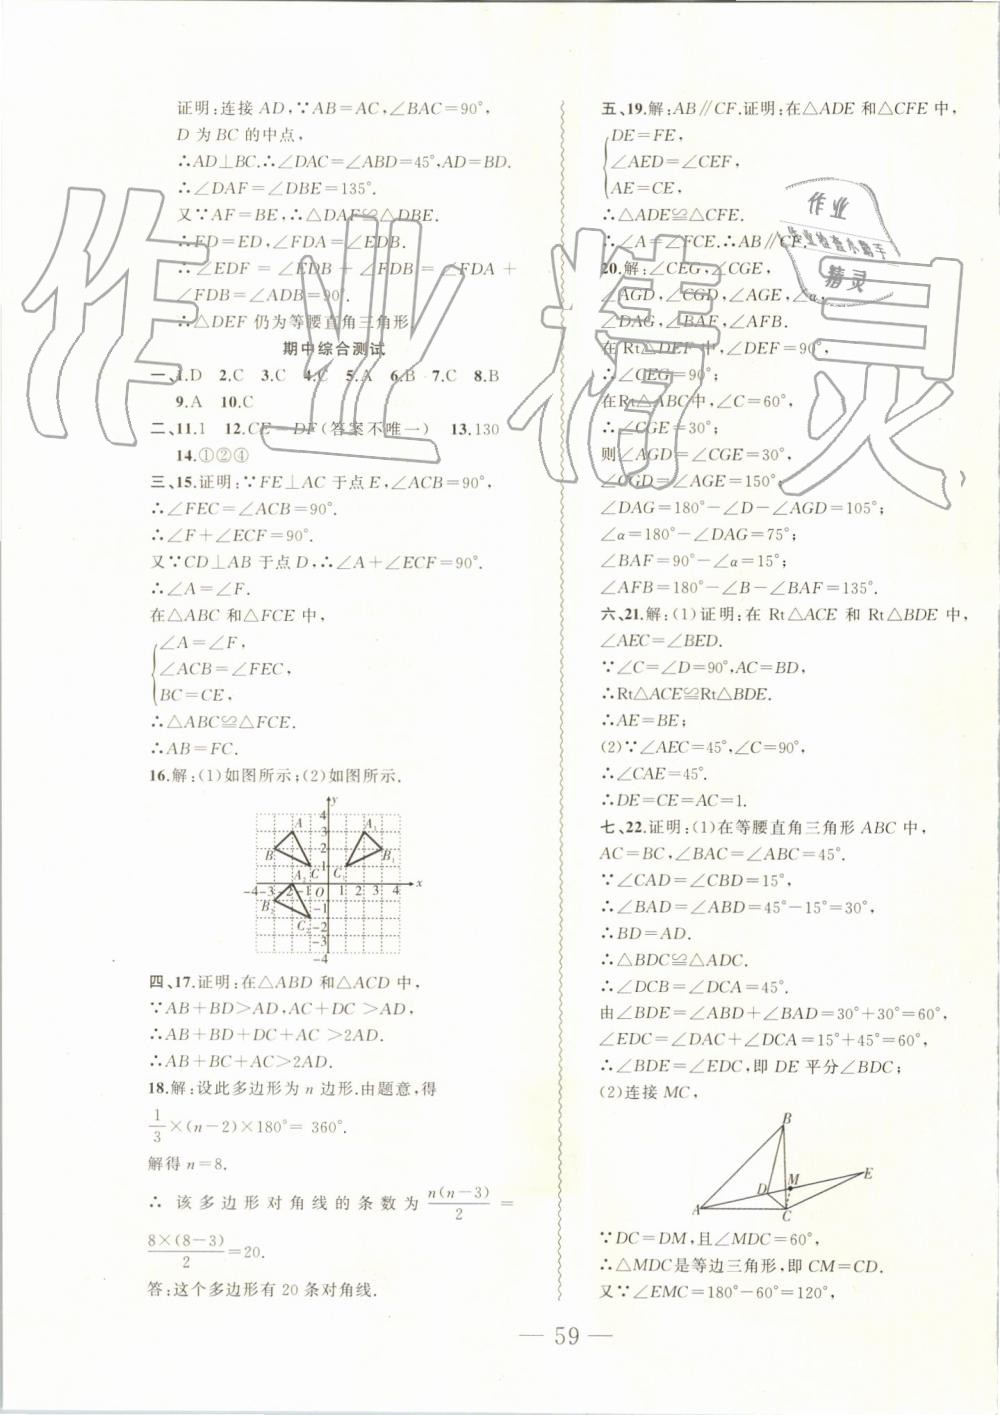 证明:连接 AD,∵AB=AC,∠BAC=90°,
D 为 BC 的中点,
∴AD⊥BC.∴∠DAC=∠ABD=45°,AD=BD.
∴∠DAF=∠DBE=135°.
又∵AF=BE,∴△DAF≌△DBE.
∴FD=ED,∠FDA=∠EDB.
∴∠EDF=∠EDB+∠FDB=∠FDA+
∠FDB=∠ADB=90°.
∴△DEF 仍为等腰直角三角形
期中综合测试
一、1.D 2.C 3.C 4.C 5.A 6.B 7.C 8.B
9.A 10.C
二、11.1 12.CE=DF(答案不唯一) 13.130
14.①②④
三、15.证明:∵FE⊥AC 于点 E,∠ACB=90°,
∴∠FEC=∠ACB=90°.
∴∠F+∠ECF=90°.
又∵CD⊥AB 于点 D,∴∠A+∠ECF=90°.
∴∠A=∠F.
在△ABC 和△FCE 中,
∠A=∠F,
∠ACB=∠FEC,
BC=CE,
∴△ABC≌△FCE.
∴AB=FC.
16.解:(1)如图所示;(2)如图所示.
y
4
A 3 A₁
B 2 B₁
A₂ C 1 C₁
-4 -3 -2 -1 O 1 2 3 4 x
B₂ -1
C₂ -2
-3
-4
四、17.证明:在△ABD 和△ACD 中,
∵AB+BD>AD,AC+DC >AD,
∴AB+BD+DC+AC >2AD.
∴AB+BC+AC>2AD.
18.解:设此多边形为 n 边形.由题意,得
1/3×(n-2)×180°= 360°.
解得 n=8.
∴ 该多边形对角线的条数为 n(n-3)/2 =
8×(8-3)/2=20.
答:这个多边形有 20 条对角线.
五、19.解:AB∥CF.证明:在△ADE 和△CFE 中,
DE=FE,
∠AED=∠CEF,
AE=CE,
∴△ADE≌△CFE.
∴∠A=∠FCE.∴AB∥CF.
20.解:∠CEG,∠CGE,
∠AGD,∠CGD,∠AGE,∠α,
∠DAG,∠BAF,∠AFB.
在 Rt△DEF 中,∠DEF=90°,
∴∠CEG=90°;
在Rt△ABC中,∠C=60°,
∴∠CGE=30°;
则∠AGD=∠CGE=30°,
∠CGD=∠AGE=150°,
∠DAG=180°-∠D-∠AGD=105°;
∠α=180°-∠DAG=75°;
∠BAF=90°-∠α=15°;
∠AFB=180°-∠B-∠BAF=135°.
六、21.解:(1)证明:在 Rt△ACE 和 Rt△BDE 中,
∠AEC=∠BED.
∵∠C=∠D=90°,AC=BD,
∴Rt△ACE≌Rt△BDE.
∴AE=BE;
(2)∵∠AEC=45°,∠C=90°,
∴∠CAE=45°.
∴DE=CE=AC=1.
七、22.证明:(1)在等腰直角三角形 ABC 中,
AC=BC,∠BAC=∠ABC=45°.
∵∠CAD=∠CBD=15°,
∴∠BAD=∠ABD=45°-15°=30°,
∴BD=AD.
∴△BDC≌△ADC.
∴∠DCB=∠DCA=45°.
由∠BDE=∠ABD+∠BAD=30°+30°=60°,
∠EDC=∠DAC+∠DCA=15°+45°=60°,
∴∠BDE=∠EDC,即 DE 平分∠BDC;
(2)连接 MC,
B
M E
D
A C
∵DC=DM,且∠MDC=60°,
∴△MDC是等边三角形,即 CM=CD.
又∵∠EMC=180°-60°=120°,
— 59 —
作业精灵
作业
作业检查小帮手
精灵